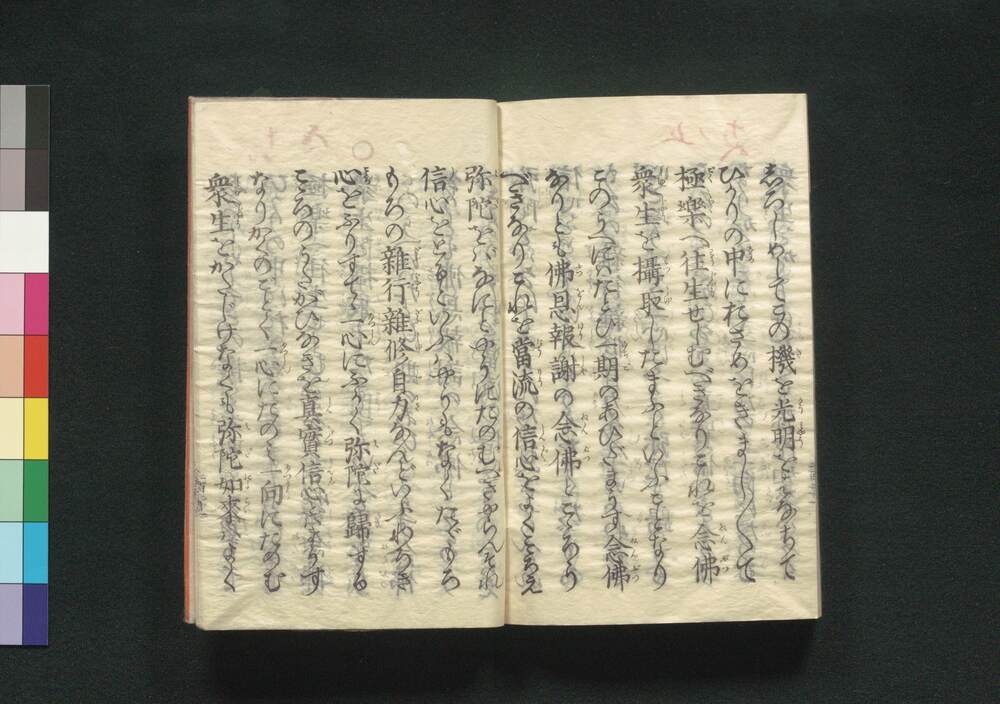 しろしめしてこの機を光明をはなちて
ひかりの中におさめをきましまして
極樂へ往生せしむべきなりこれを念佛
衆生を攝取したまふといふことなり
このうへにはたとひ一期のあひだまうす念佛
なりとも佛恩報謝の念佛とこゝろう
べきなりこれを當流の信心をよくこゝろえ
弥陀をばなにとやうにたのむべきやらんそれ
信心をとるといふはやうもなくたゞもろ
もろの雜行雜修自力なんどいふわろき
心をふりすてゝ一心にふかく弥陀に歸する
こゝろのうたがひなきを真實信心とまうす
なりかくのごとく一心にたのみ一向にたのむ
衆生をかたじけなくも弥陀如来はよく